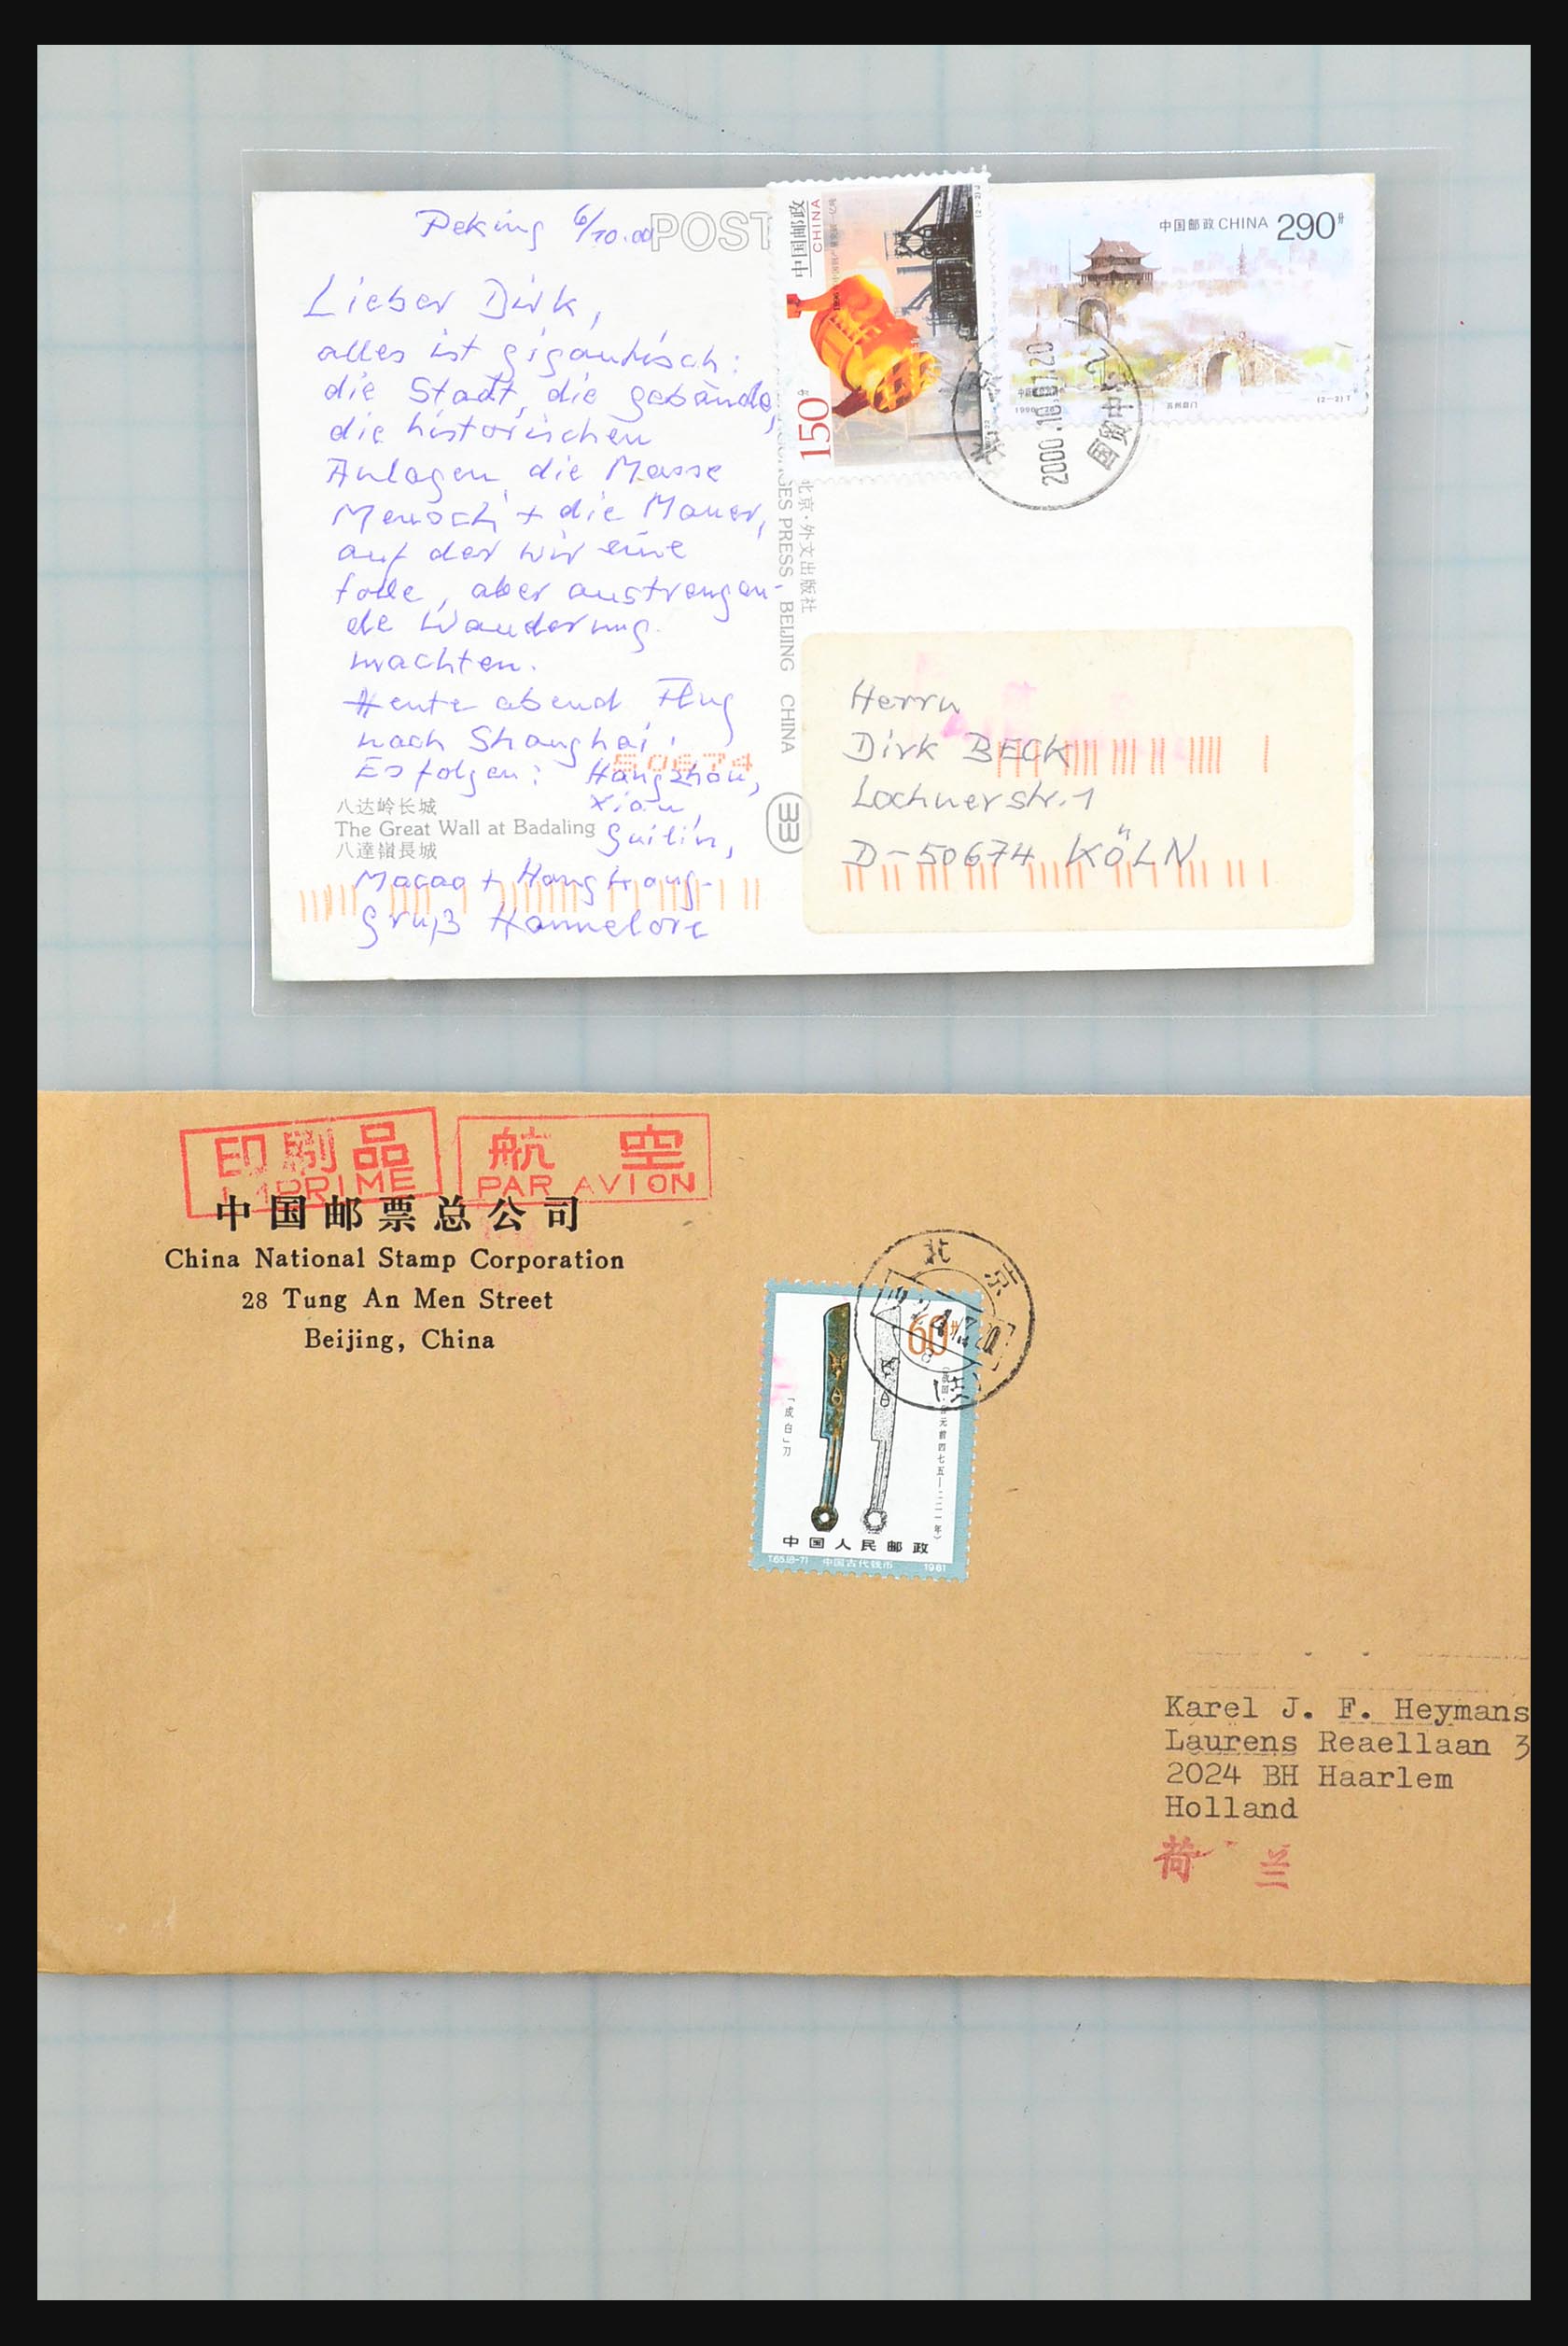 Peking 6/10.00
POST
Lieber Dirk,
alles ist gigantisch:
die Stadt, die gebäude,
die historischen
Anlagen, die Masse
Mensch + die Mauer,
auf der wir eine
tolle, aber anstrengen-
de Wanderung
machten.
Heute abend Flug
nach Shanghai.
Es folgen: Hangzhou,
Xian,
Guilin,
Macao + Hongkong.
Gruß Hannelore
50674
八达岭长城
The Great Wall at Badaling
八達嶺長城
北京·外文出版社
PRESS BEIJING CHINA
中国邮政
CHINA
150分
中国邮政 CHINA 290分
苏州盘门
(2-2)T
北京
2000.10.07.20
国贸中心
33
Herrn
Dirk BECK
Lochnerstr. 1
D-50674 KÖLN
印刷品
IMPRIME
航空
PAR AVION
中国邮票总公司
China National Stamp Corporation
28 Tung An Men Street
Beijing, China
北京
60分
「成白」刀
中国人民邮政
T.65.(8-7) 中国古代钱币 1981
Karel J. F. Heymans
Laurens Reaellaan 3
2024 BH Haarlem
Holland
荷兰